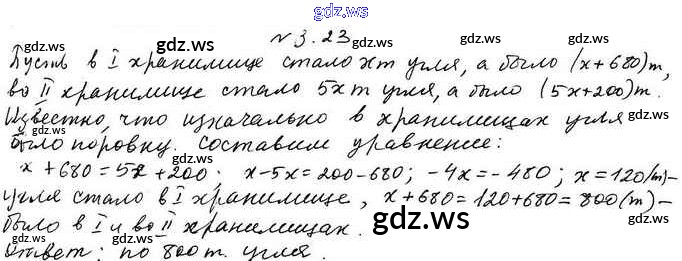 gdz.ws
gdz.ws N 3.23 gdz.ws
Пусть в I хранилище стало x т угля, а было (x+680) т,
gdz.ws gdz.ws gdz.ws
во II хранилище стало 5x т угля, а было (5x+200) т.
Известно, что изначально в хранилищах угля
gdz.ws gdz.ws gdz.ws
было поровну. Составим уравнение:
x+680=5x+200; x-5x=200-680; -4x=-480; x=120 (т)-
угля стало в I хранилище, x+680=120+680=800 (т)-
gdz.ws gdz.ws
было в I и во II хранилищах. gdz.ws
Ответ: по 800 т. угля.